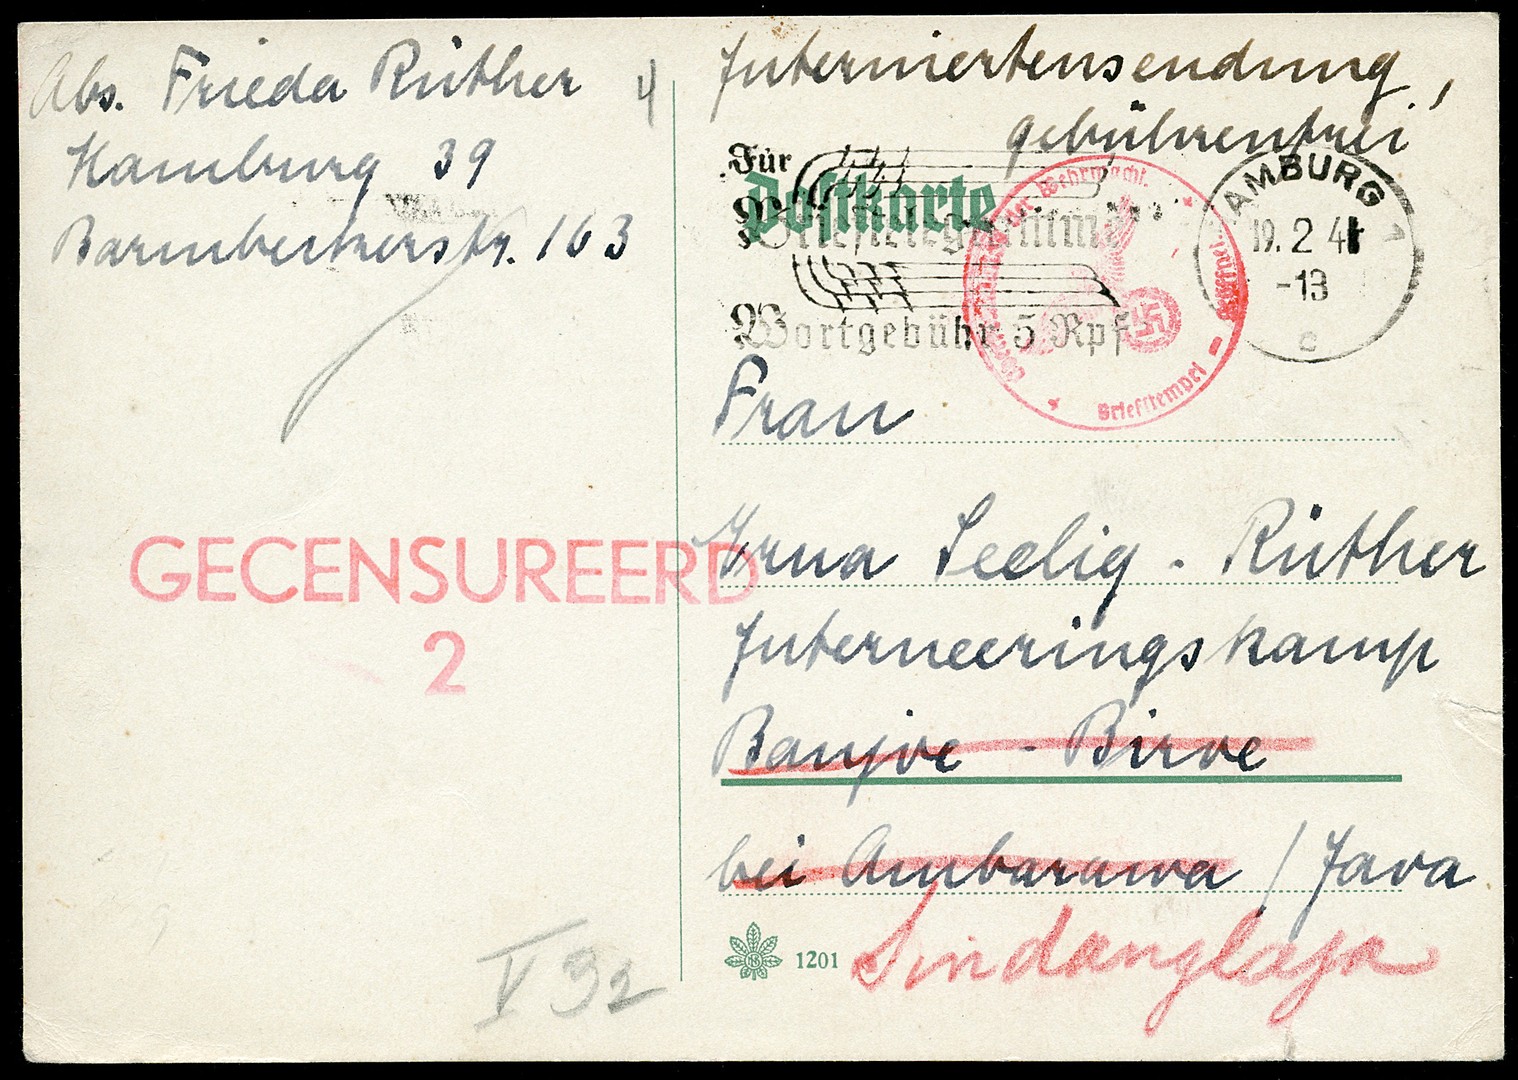 Abs. Frieda Rüther 4
Hamburg 39
Barmbeckerstr. 163
GECENSUREERD
2
V 32
Interniertensendung,
gebührenfrei
Für
Postkarte
Brieftelegramme
Wortgebühr 5 Rpf
der Wehrmacht
Briefstempel
HAMBURG 1
19.2.41
-13
e
Frau
Erna Seelig - Rüther
Interneeringskamp
Banjoe - Biroe
bei Ambarawa / Java
1201
Sindanglaja